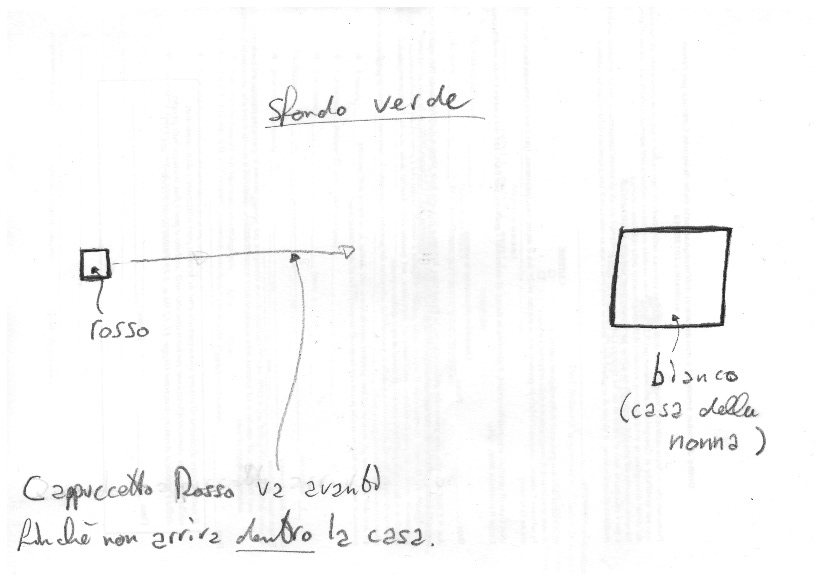 Sfondo verde
rosso
bianco
(casa della
nonna)
Cappuccetto Rosso va avanti
finchè non arriva dentro la casa.